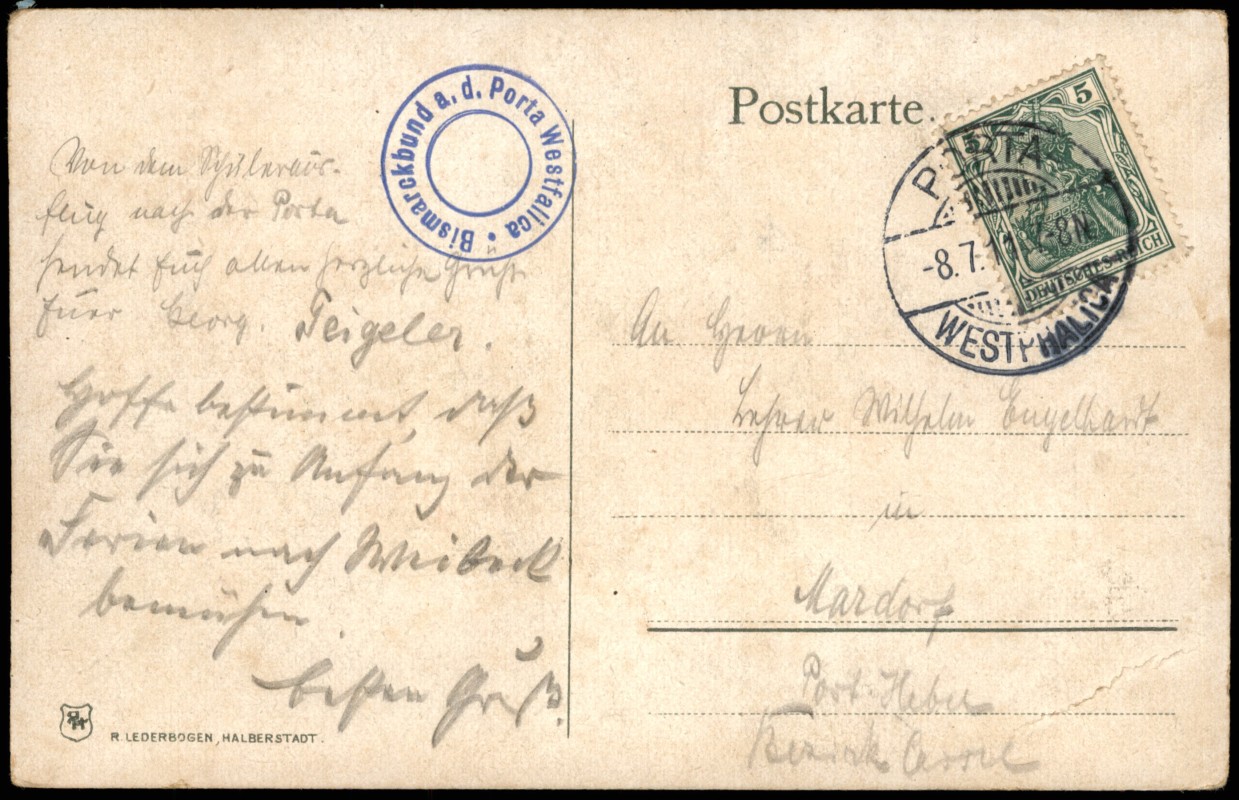 Postkarte.
Bismarckbund a. d. Porta Westfalica •
5
5
DEUTSCHES REICH
PORTA
-8.7.11 7-8N
WESTPHALICA
Von dem Schüleraus-
flug nach der Porta
sendet Euch allen herzliche Grüße
Euer Georg. Teigeler.
Hoffe bestimmt, daß
Sie sich zu Anfang der
Ferien nach Weibeck
bemühen.
Besten Gruß.
An Herrn
Lehrer Wilhelm Engelhardt
in
Mardorf
Bezirk Cassel
R. LEDERBOGEN, HALBERSTADT.